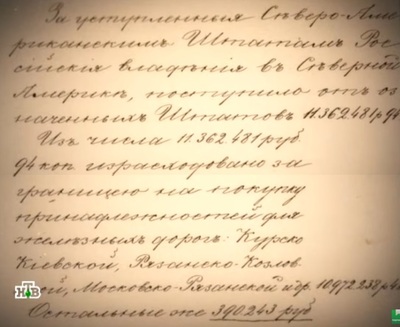 За уступленныя Сѣверо-Аме-
риканскимъ Штатамъ Рос-
сійскія владѣнія въ Сѣверной
Америкѣ, поступило отъ оз
наченныхъ Штатовъ 11.362.481 р 94
Изъ числа 11.362.481 руб.
94 коп израсходовано за
границею на покупку
принадлежностей для
желѣзныхъ дорогъ: Курско
Кіевской, Рязанско-Козлов
ской, Московско-Рязанской и др. 10972238 р 4
Остальные же 390.243 руб
НТВ